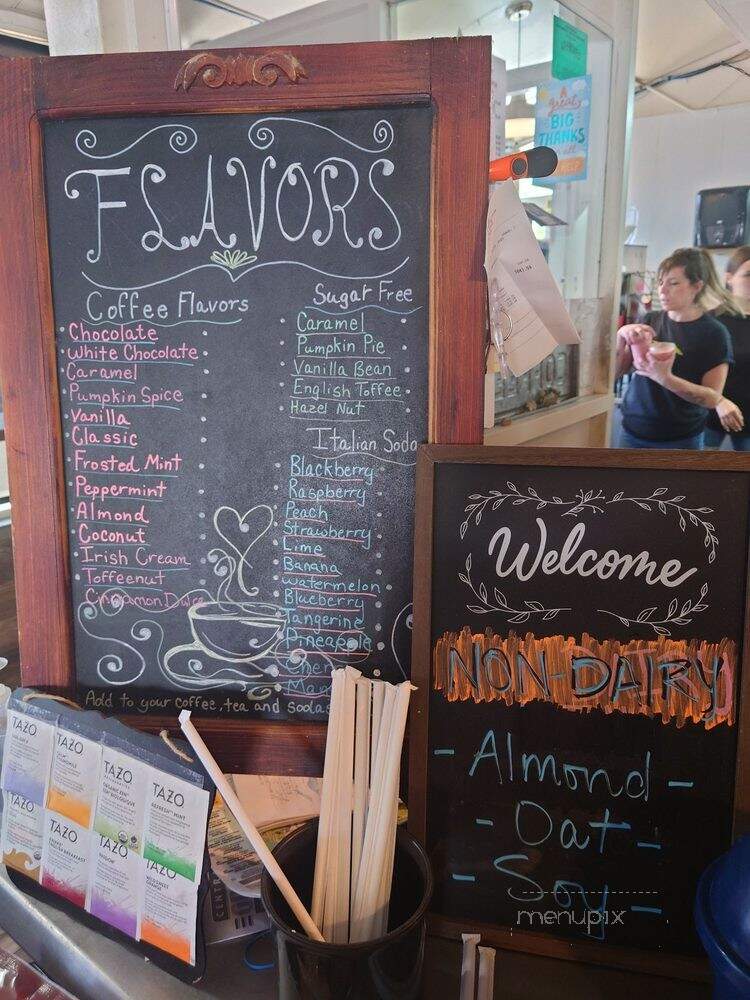 FLAVORS
Coffee Flavors
Chocolate
White Chocolate
Caramel
Pumpkin Spice
Vanilla
Classic
Frosted Mint
Peppermint
Almond
Coconut
Irish Cream
Toffeenut
Cinnamon Dulce
Sugar Free
Caramel
Pumpkin Pie
Vanilla Bean
English Toffee
Hazel Nut
Italian Soda
Blackberry
Raspberry
Peach
Strawberry
Lime
Banana
Watermelon
Blueberry
Tangerine
Pineapple
Add to your coffee, tea and sodas
A
great
BIG
THANKS
Welcome
NON-DAIRY
- Almond -
- Oat -
- Soy -
menupix
TAZO
TAZO
TAZO
TAZO
REFRESH MINT
TAZO
TAZO
TAZO